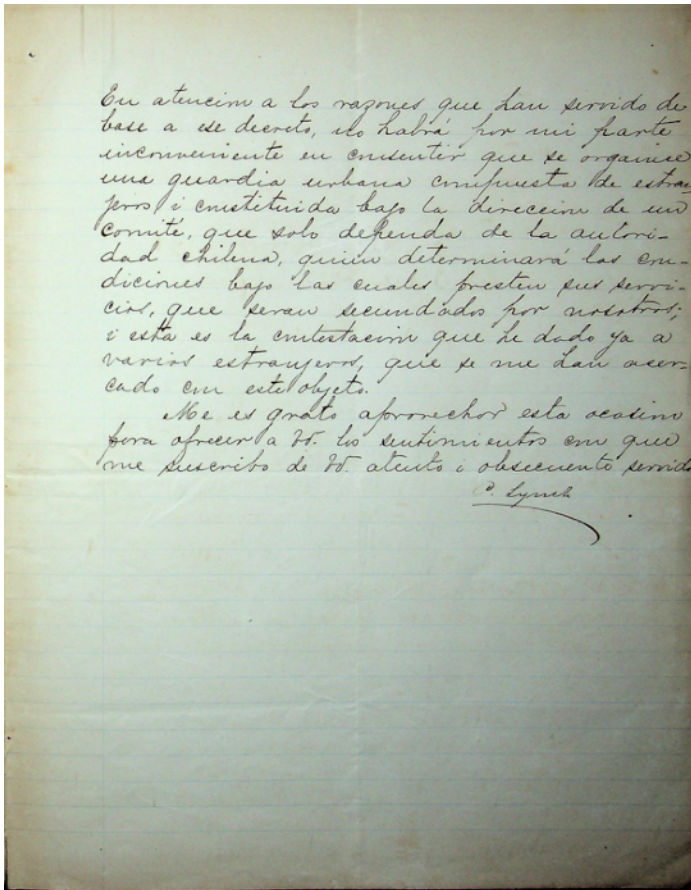 En atencion a los razones que han servido de
base a ese decreto, no habrá por mi parte
inconveniente en consentir que se organice
una guardia urbana compuesta de estran-
jeros, i constituida bajo la direccion de un
comité, que solo dependa de la autori-
dad chilena, quien determinará las con-
diciones bajo las cuales presten sus servi-
cios, que seran secundados por nosotros;
i esta es la contestacion que he dado ya a
varios estranjeros, que se me han acer-
cado con este objeto.
Me es grato aprovechar esta ocasion
para ofrecer a Vd. los sentimientos con que
me suscribo de Vd. atento i obsecuente servido
P. Lynch